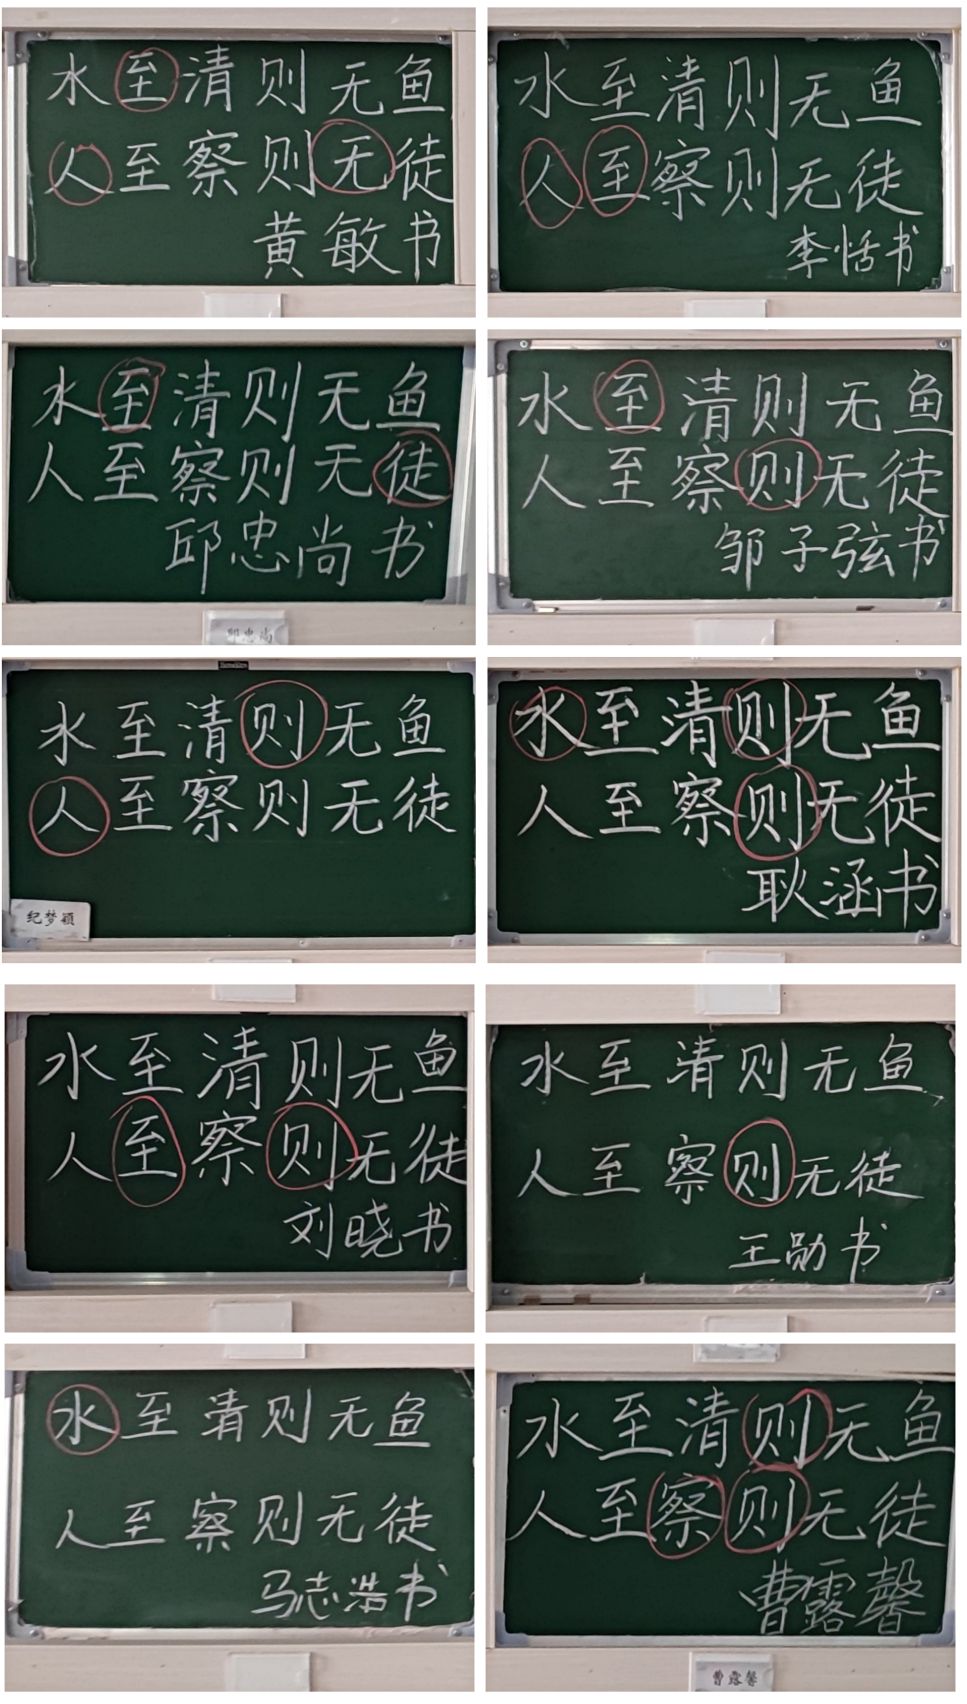 水至清则无鱼
人至察则无徒
黄敏书
水至清则无鱼
人至察则无徒
李恬书
水至清则无鱼
人至察则无徒
邱忠尚书
邱忠尚
水至清则无鱼
人至察则无徒
邹子弦书
水至清则无鱼
人至察则无徒
纪梦颖
水至清则无鱼
人至察则无徒
耿涵书
水至清则无鱼
人至察则无徒
刘晓书
水至清则无鱼
人至察则无徒
王勋书
水至清则无鱼
人至察则无徒
马志浩书
水至清则无鱼
人至察则无徒
曹露馨
曹露馨